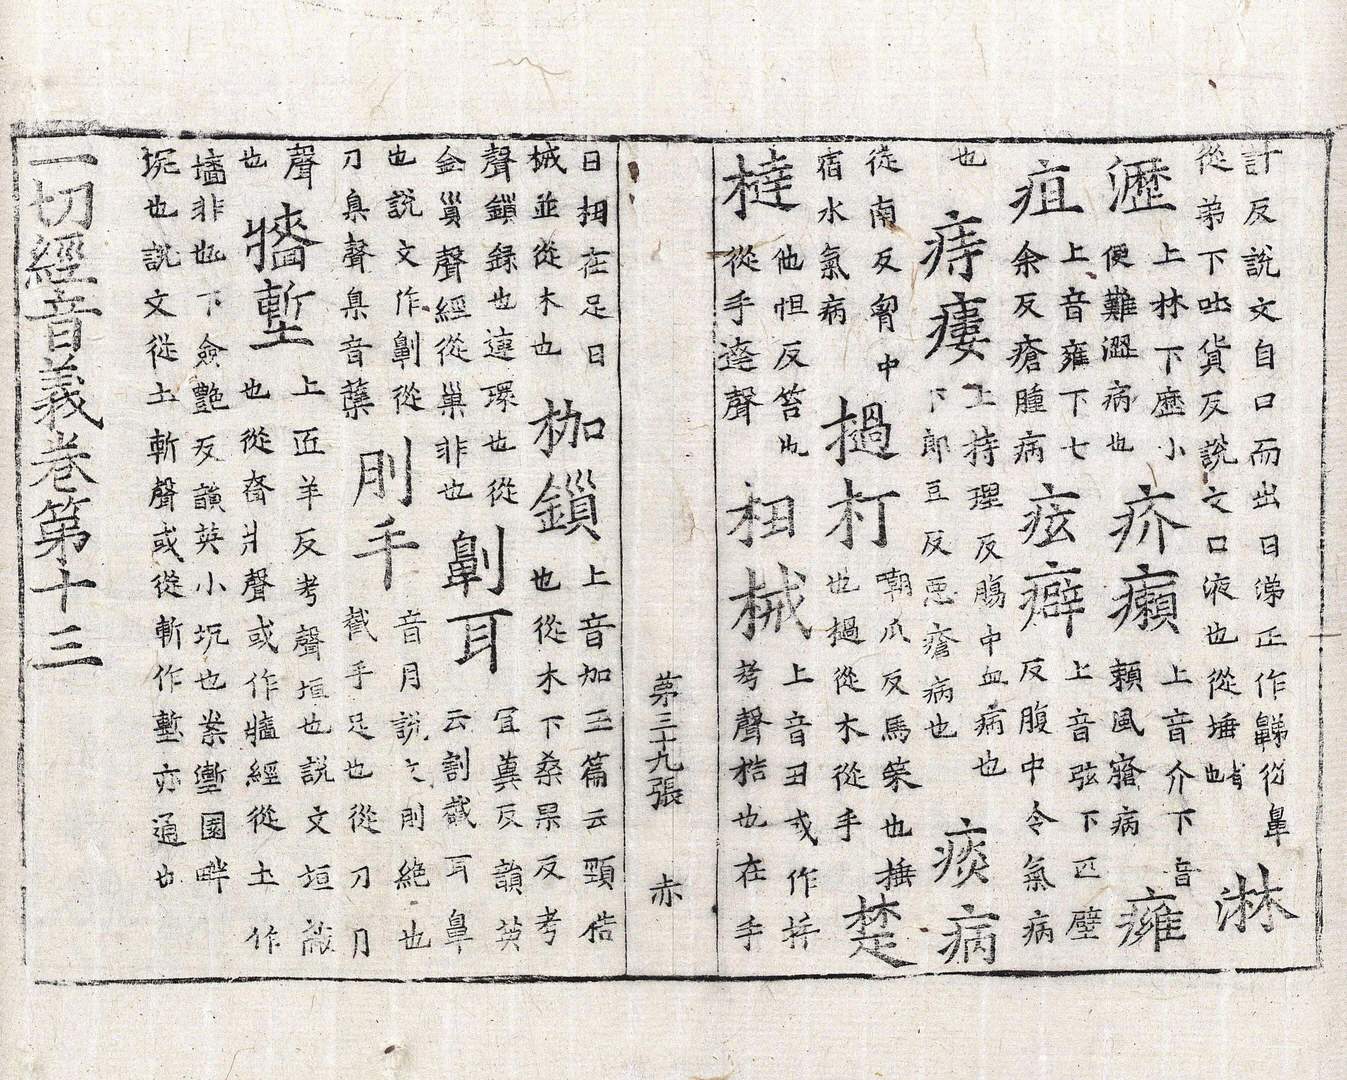 計反說文自口而出曰涕正作𪖂從鼻從弟下吐貨反說文口液也從埵省也淋
瀝上林下歷小便難澀病也疥癩上音介下音賴風瘡病癰
疽上音雍下七余反瘡腫病痃癖上音弦下匹壁反腹中令氣病
也痔瘻上持理反腸中血病也下郎豆反惡瘡病也痰病
從南反胷中宿水氣病撾打嘲瓜反馬策也捶也撾從木從手楚
撻他怛反笞也從手達聲杻械上音丑或作杽考聲桎也在手
第三十九張 赤
曰杻在足曰械並從木也枷鎖上音加玉篇云頸俈也從木下桑果反考
聲鎖錄也連環也從金𧴪聲經從巢非也劓耳宜冀反韻英云割截耳鼻
也說文作劓從刀臬聲臬音蘖刖手音月說文刖絕也截手足也從刀月
聲也牆塹上匠羊反考聲垣也說文垣蔽也從嗇爿聲或作牆經從土作
墻非也下僉艷反韻英小坑也案壍園畔坑也說文從土斬聲或從斬作塹亦通也
一切經音義卷第十三